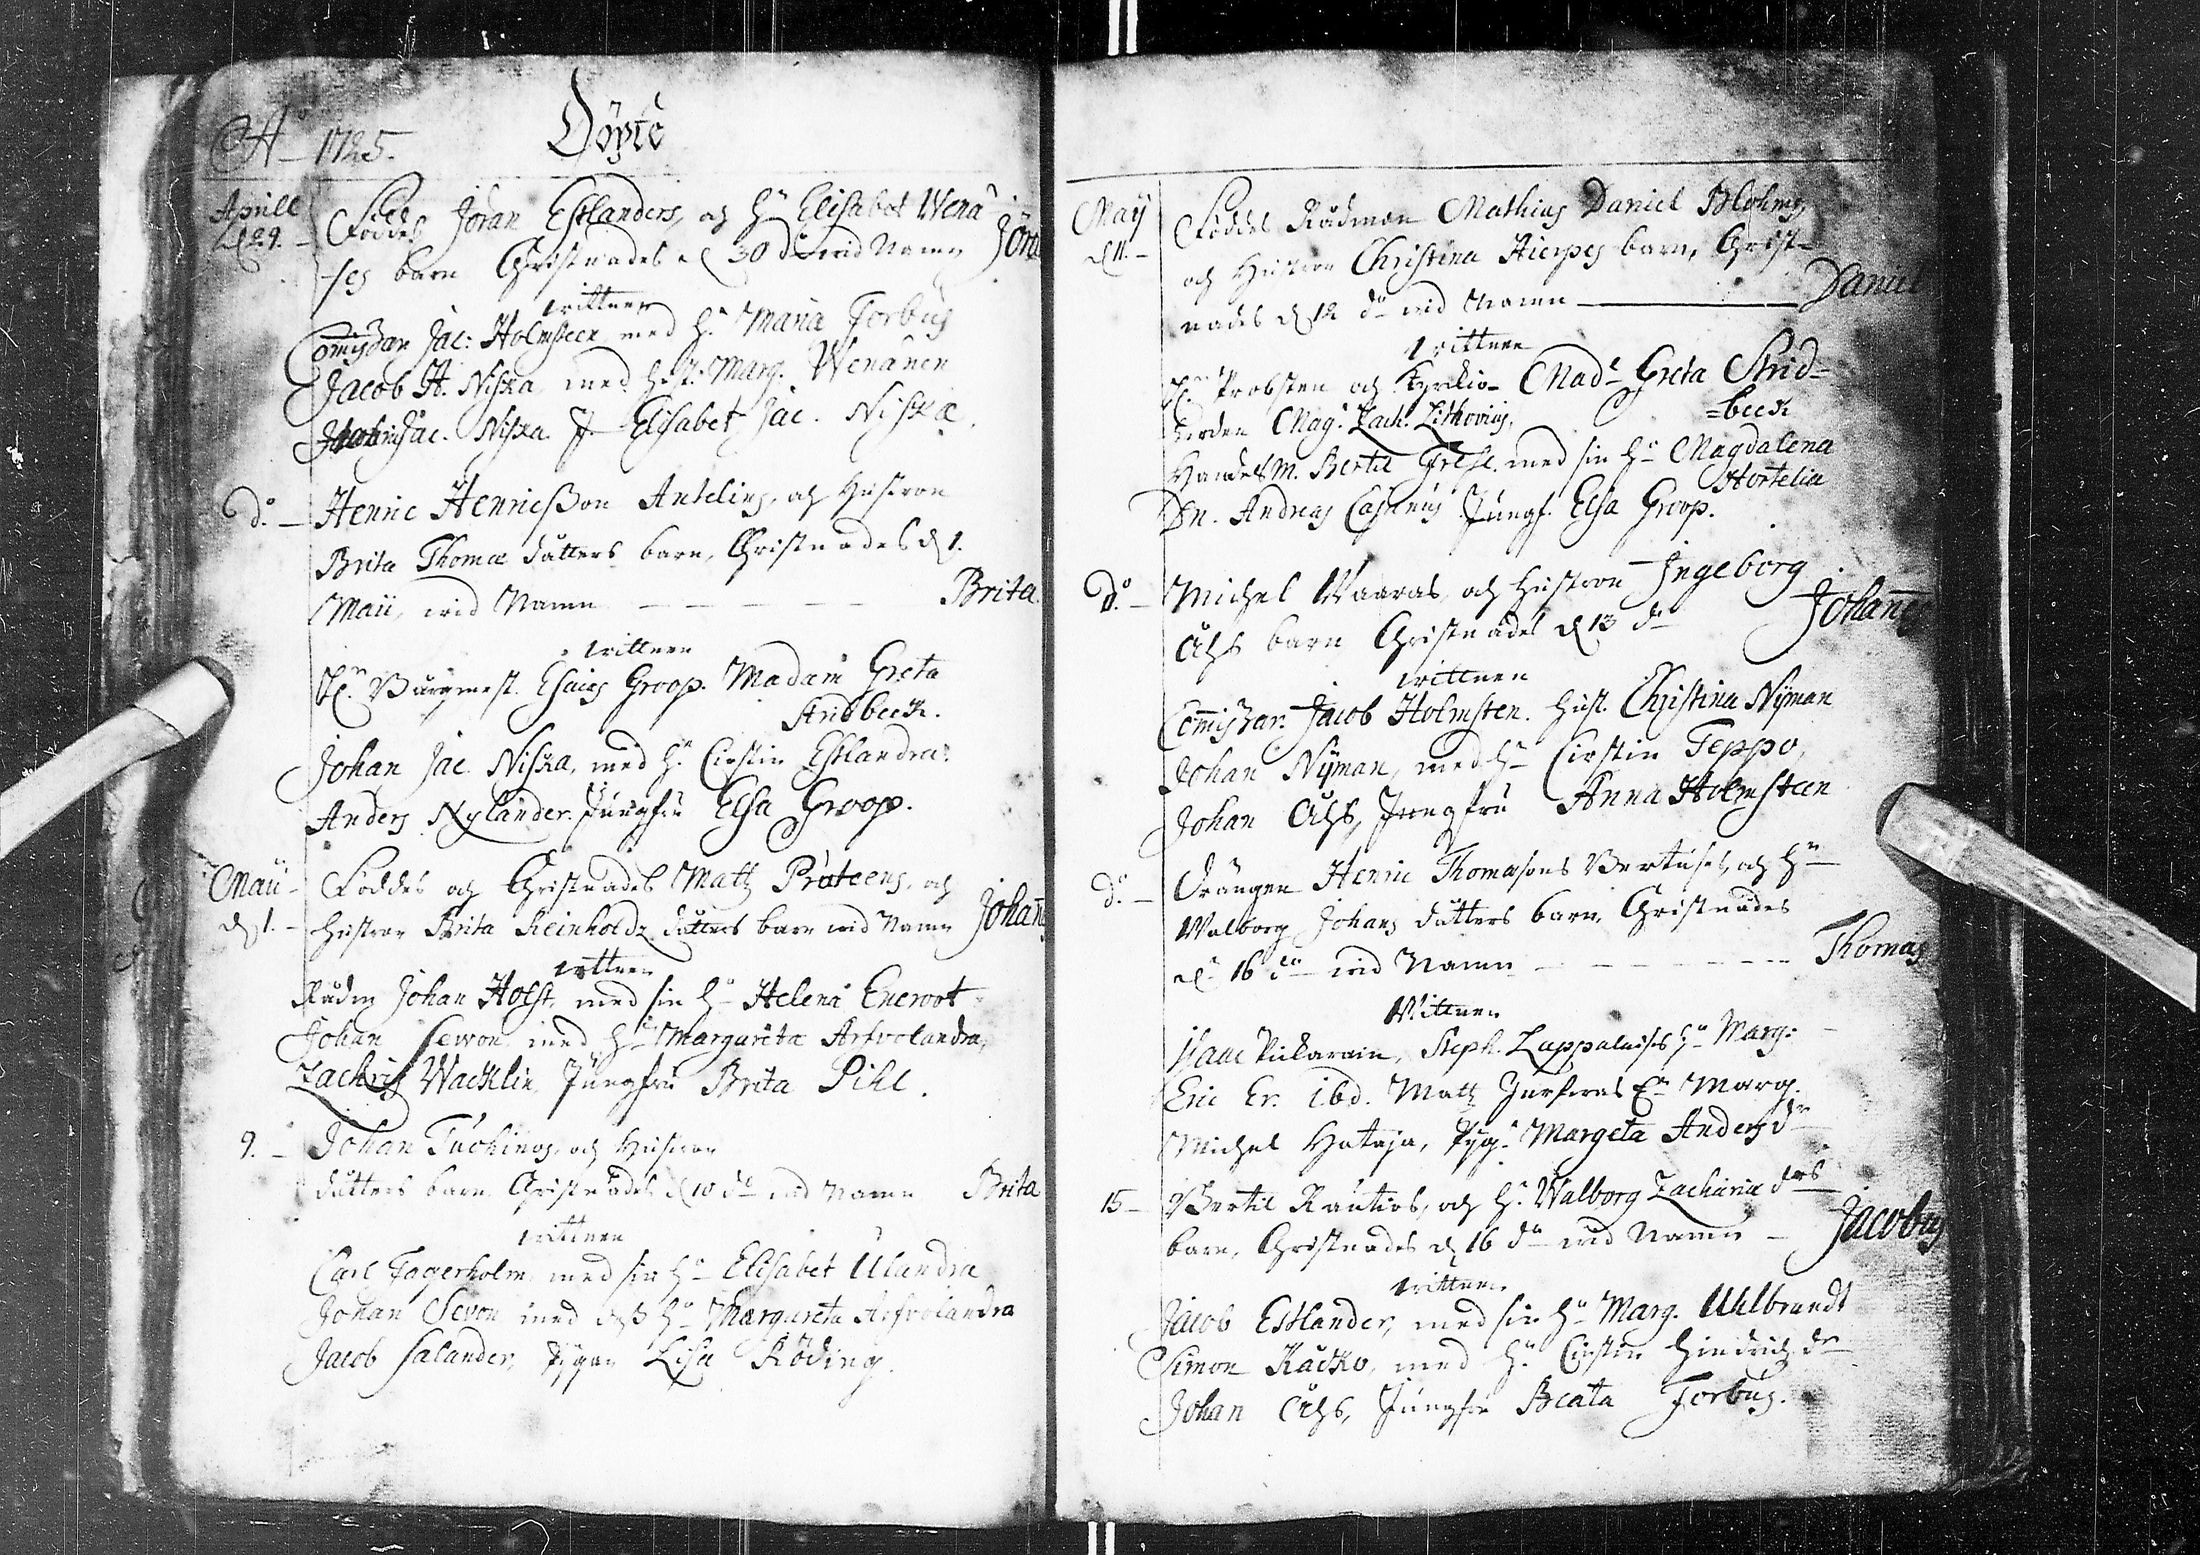 Ao 1725. Döpte
Aprill d 29. – Föddes Jöran Estlanders, och Hu Elisabet Wenä
ses barn Christnades d 30 do wid Namn Jöra
wittnen
Comissar Jac: Holmsteen med Hu Maria Forbus
Jacob H. Niska med Hust. Marg. Wenänen
Jac. Niska J. Elisabet Jac. Niska.
do – Henric Henricsson Antelius, och Hustron
Brita Thomæ dotters barn, Christnades d 1.
Maii, wid Namn – – – – – Brita.
wittnen
Hr Burgmest. Esaias Groop. Madam Greta
Stridbeck.
Johan Jac. Niska, med Hu Cirstin Estlandra:
Anders Nylander. Jungfru Elsa Groop.
Maii d 1. – Föddes och Christnades Matz Proteens, och
Hustron Brita Reinholdz dotters barn wid Namn Johan
wittnen
Rådm Johan Holst, med sin Hu Helena Enewot
Johan Sewon med Hu Margareta Arfvolandra,
Zachris Wacklin, Jungfru Brita Pihl.
9. – Johan Tuchinos, och Hustron
dotters barn Christnades d 10 do wid Namn Brita
wittnen
Carl Fagerholm med sin Hu Elisabet Ulandra
Johan Sevon med dess Hu Margareta Arfvolandra
Jacob Salander, Pygan Lisa Röding.
May d 11. – Föddes Rådman Mathias Daniel Blohms,
och Hustron Christina Hierpes barn, Christ-
nades d 12 do wid Namn — Daniel
wittnen
Hr Probsten och Kyrckio- Made Greta Strid-
herden Mag. Zach. Lithovius. =beck
Handelsm. Bertil Frese med sin Hu Magdalena
Hortelia
Dn. Andreas Castenius Jungf. Elsa Groop.
do – Michel Waaras, och Hustron Ingeborg
Ahls barn Christnades d 13 do Johannes
wittnen
Comissar. Jacob Holmsten. Hust. Christina Nyman
Johan Nyman, med Hu Cirstin Teppo,
Johan Ahls, Jungfru Anna Holmsteen
do – Drängen Henric Thomasons Vertuses, och Hu
Walborg Johans dotters barn, Christnades
d 16 do wid Namn – – – – Thomas
Wittnen
Isaac Pickarain, Steph. Lappalaises Hu Marg:
Eric Er. ibd. Matz Hu Marg.
Michel Hataja, Pyg. Margeta Andersdr
15 – Bertil Rautios, och Hu Walborg Zachariæ drs
barn, Christnades d 16 do wid Namn – Jacobus
wittnen
Jacob Estlander, med sin Hu Marg. Uhlbrandt
Simon Räcko, med Hu Cirstin Hindrichsdr
Johan Ahls, Jungfru Beata Forbus.